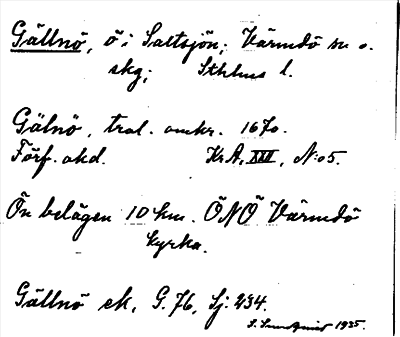 Gällnö, ö i Saltsjön; Värmdö sn o.
skg; Sthlms l.
Gälnö, trol. omkr. 1670.
Förf. okd. Kr.A. XXI, N:o 5.
Ön belägen 10 km. ÖNÖ Värmdö
kyrka.
Gällnö ek, G. 76, Sj: 234.
S. Sundqvist 1925.